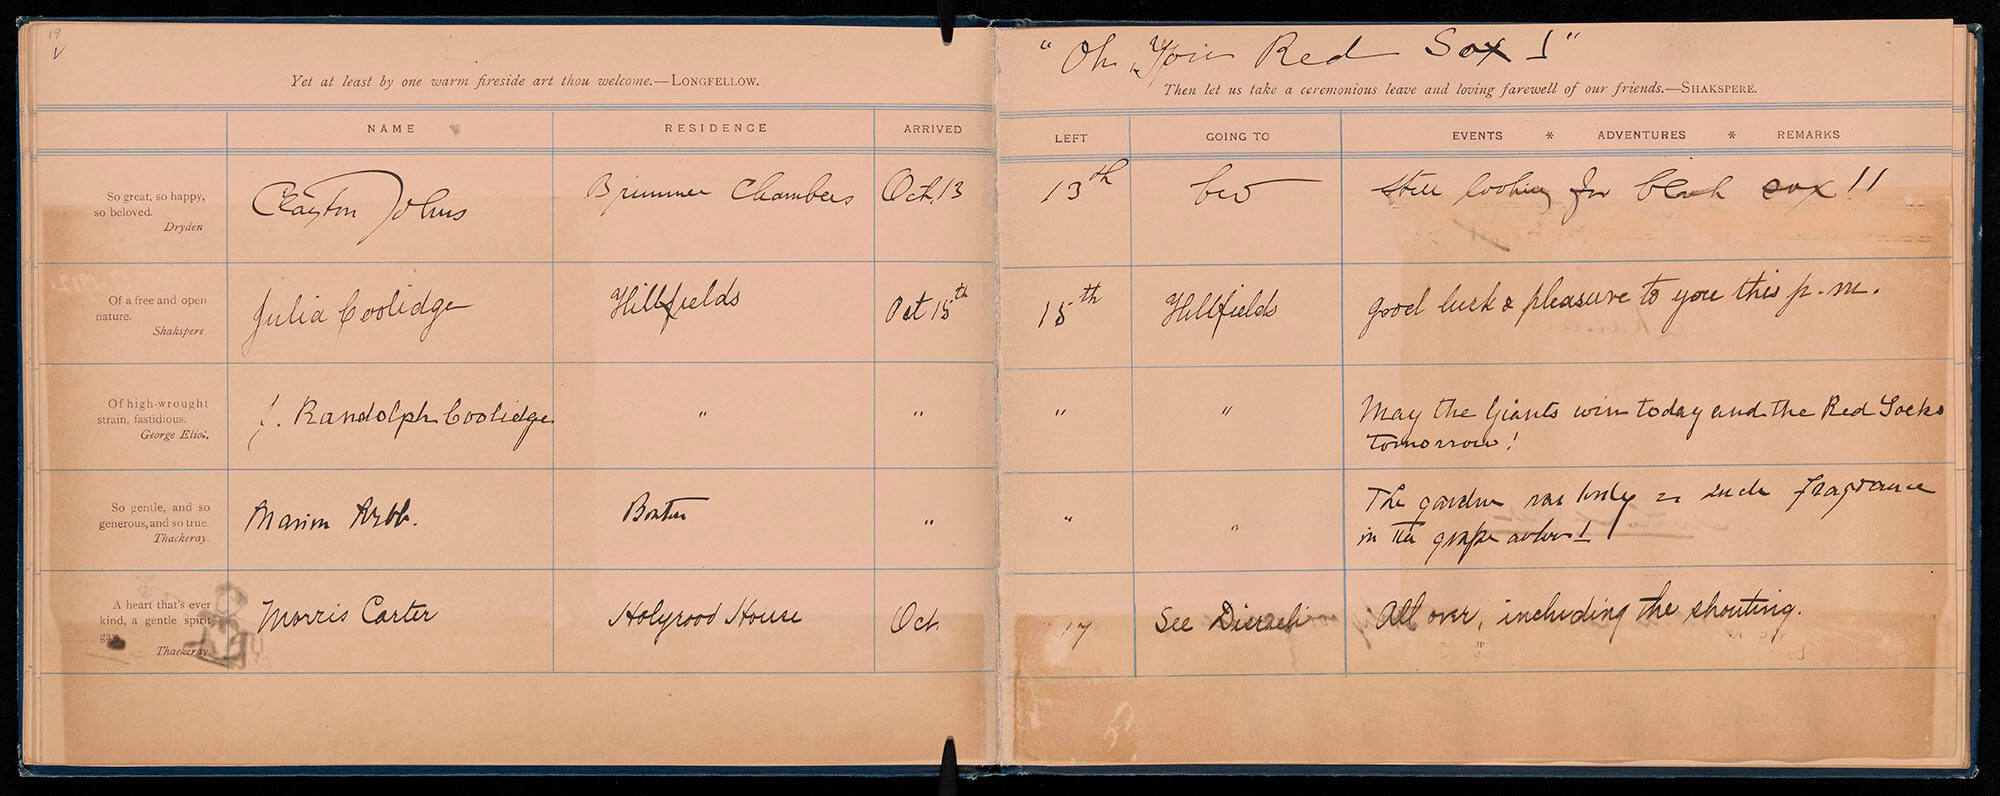 19
"Oh, You Red Sox!"
Yet at least by one warm fireside art thou welcome.—LONGFELLOW.
Then let us take a ceremonious leave and loving farewell of our friends.—SHAKSPERE.
NAME RESIDENCE ARRIVED LEFT GOING TO EVENTS * ADVENTURES * REMARKS
So great, so happy,
so beloved.
Dryden
Clayton Johns Brimmer Chambers Oct. 13 13th bed Still looking for black sox!!
Of a free and open
nature.
Shakspere.
Julia Coolidge Hillfields Oct 15th 15th Hillfields Good luck & pleasure to you this p.m.
Of high-wrought
strain, fastidious.
George Eliot.
J. Randolph Coolidge " " " " May the Giants win today and the Red Socks
tomorrow!
So gentle, and so
generous, and so true.
Thackeray.
Boston " " " The garden was lovely such fragrance
in the grape arbor!
A heart that's ever
kind, a gentle spirit
gay.
Thackeray.
Morris Carter Holyrood House Oct. 17 See Disraeli All over, including the shouting.